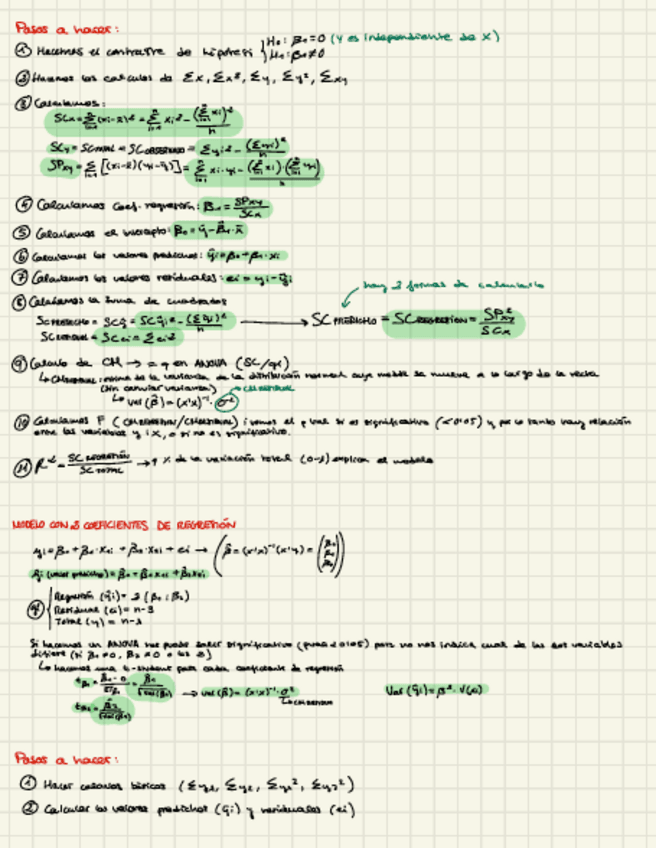 Pasos a hacer:
① Hacemos el contraste de hipótesis { H₀: β₁=0 (Y es independiente de X)
H₁: β₁≠0
② Hacemos los calculos de Σx, Σx², Σy, Σy², Σxy
③ Calculamos:
SCx = Σ(xi-x̄)² = Σxi² - (Σxi)²/n
SCy = SCTOTAL = SCOBSERVADO = Σyi² - (Σyi)²/n
SPxy = Σ[(xi-x̄)(yi-ȳ)] = Σxi·yi - (Σxi)·(Σyi)/n
④ Calculamos coef. regresión: β₁ = SPxy/SCx
⑤ Calculamos el intercepto: β₀ = ȳ - β₁·x̄
⑥ Calculamos los valores predichos: ŷi = β₀ + β₁·xi
⑦ Calculamos los valores residuales: ei = yi - ŷi
⑧ Calculamos la suma de cuadrados
hay 2 formas de calcularlo
SCPREDICHO = SCŷ = SCŷi² - (Σŷi)²/n → SCPREDICHO = SCREGRESIÓN = SP²xy/SCx
SCRESIDUAL = SCei = Σei²
⑨ Calculo de CM → = q en ANOVA (SC/gl)
↳ CMRESIDUAL: de la varianza de la distribución normal cuya media se mueve a lo largo de la recta
(sin cambiar varianza)
↳ Var(β̂) = (x'x)⁻¹·σ² → CMRESIDUAL
⑩ Calculamos F (CMREGRESIÓN/CMRESIDUAL) y vemos el p valor si es significativo (<0'05) y por lo tanto hay relación
entre las variables y i x, o si no es significativo.
⑪ R² = SCREGRESIÓN/SCTOTAL → % de la variación total (0-1) explica el modelo
MODELO CON 2 COEFICIENTES DE REGRESIÓN
yi = β₀ + β₁·x₁i + β₂·x₂i + ei → (β̂ = (x'x)⁻¹(x'y) = (β₀ β₁ β₂))
ŷi (valor predicho) = β₀ + β₁x₁i + β₂x₂i
gl { Regresión (ŷi) = 2 (β₁; β₂)
Residual (ei) = n-3
Total (y) = n-1
Si hacemos un ANOVA nos puede salir significativo (pvalor<0'05) pero no nos indica cual de las dos variables
difiere (si β₁≠0, β₂≠0 o las 2)
↳ hacemos una t-student para cada coeficiente de regresión
tβ₁ = β₁-0/ = β₁/√var(β₁) → var(β̂) = (x'x)⁻¹·σ²
↳ CMRESIDUAL
tβ₂ = β₂/√var(β₂)
Var(ŷi) = β²·V(x)
Pasos a hacer:
① Hacer calculos básicos (Σy₁, Σy₂, Σy₁², Σy₂²)
② Calcular los valores predichos (ŷi) y residuales (ei)